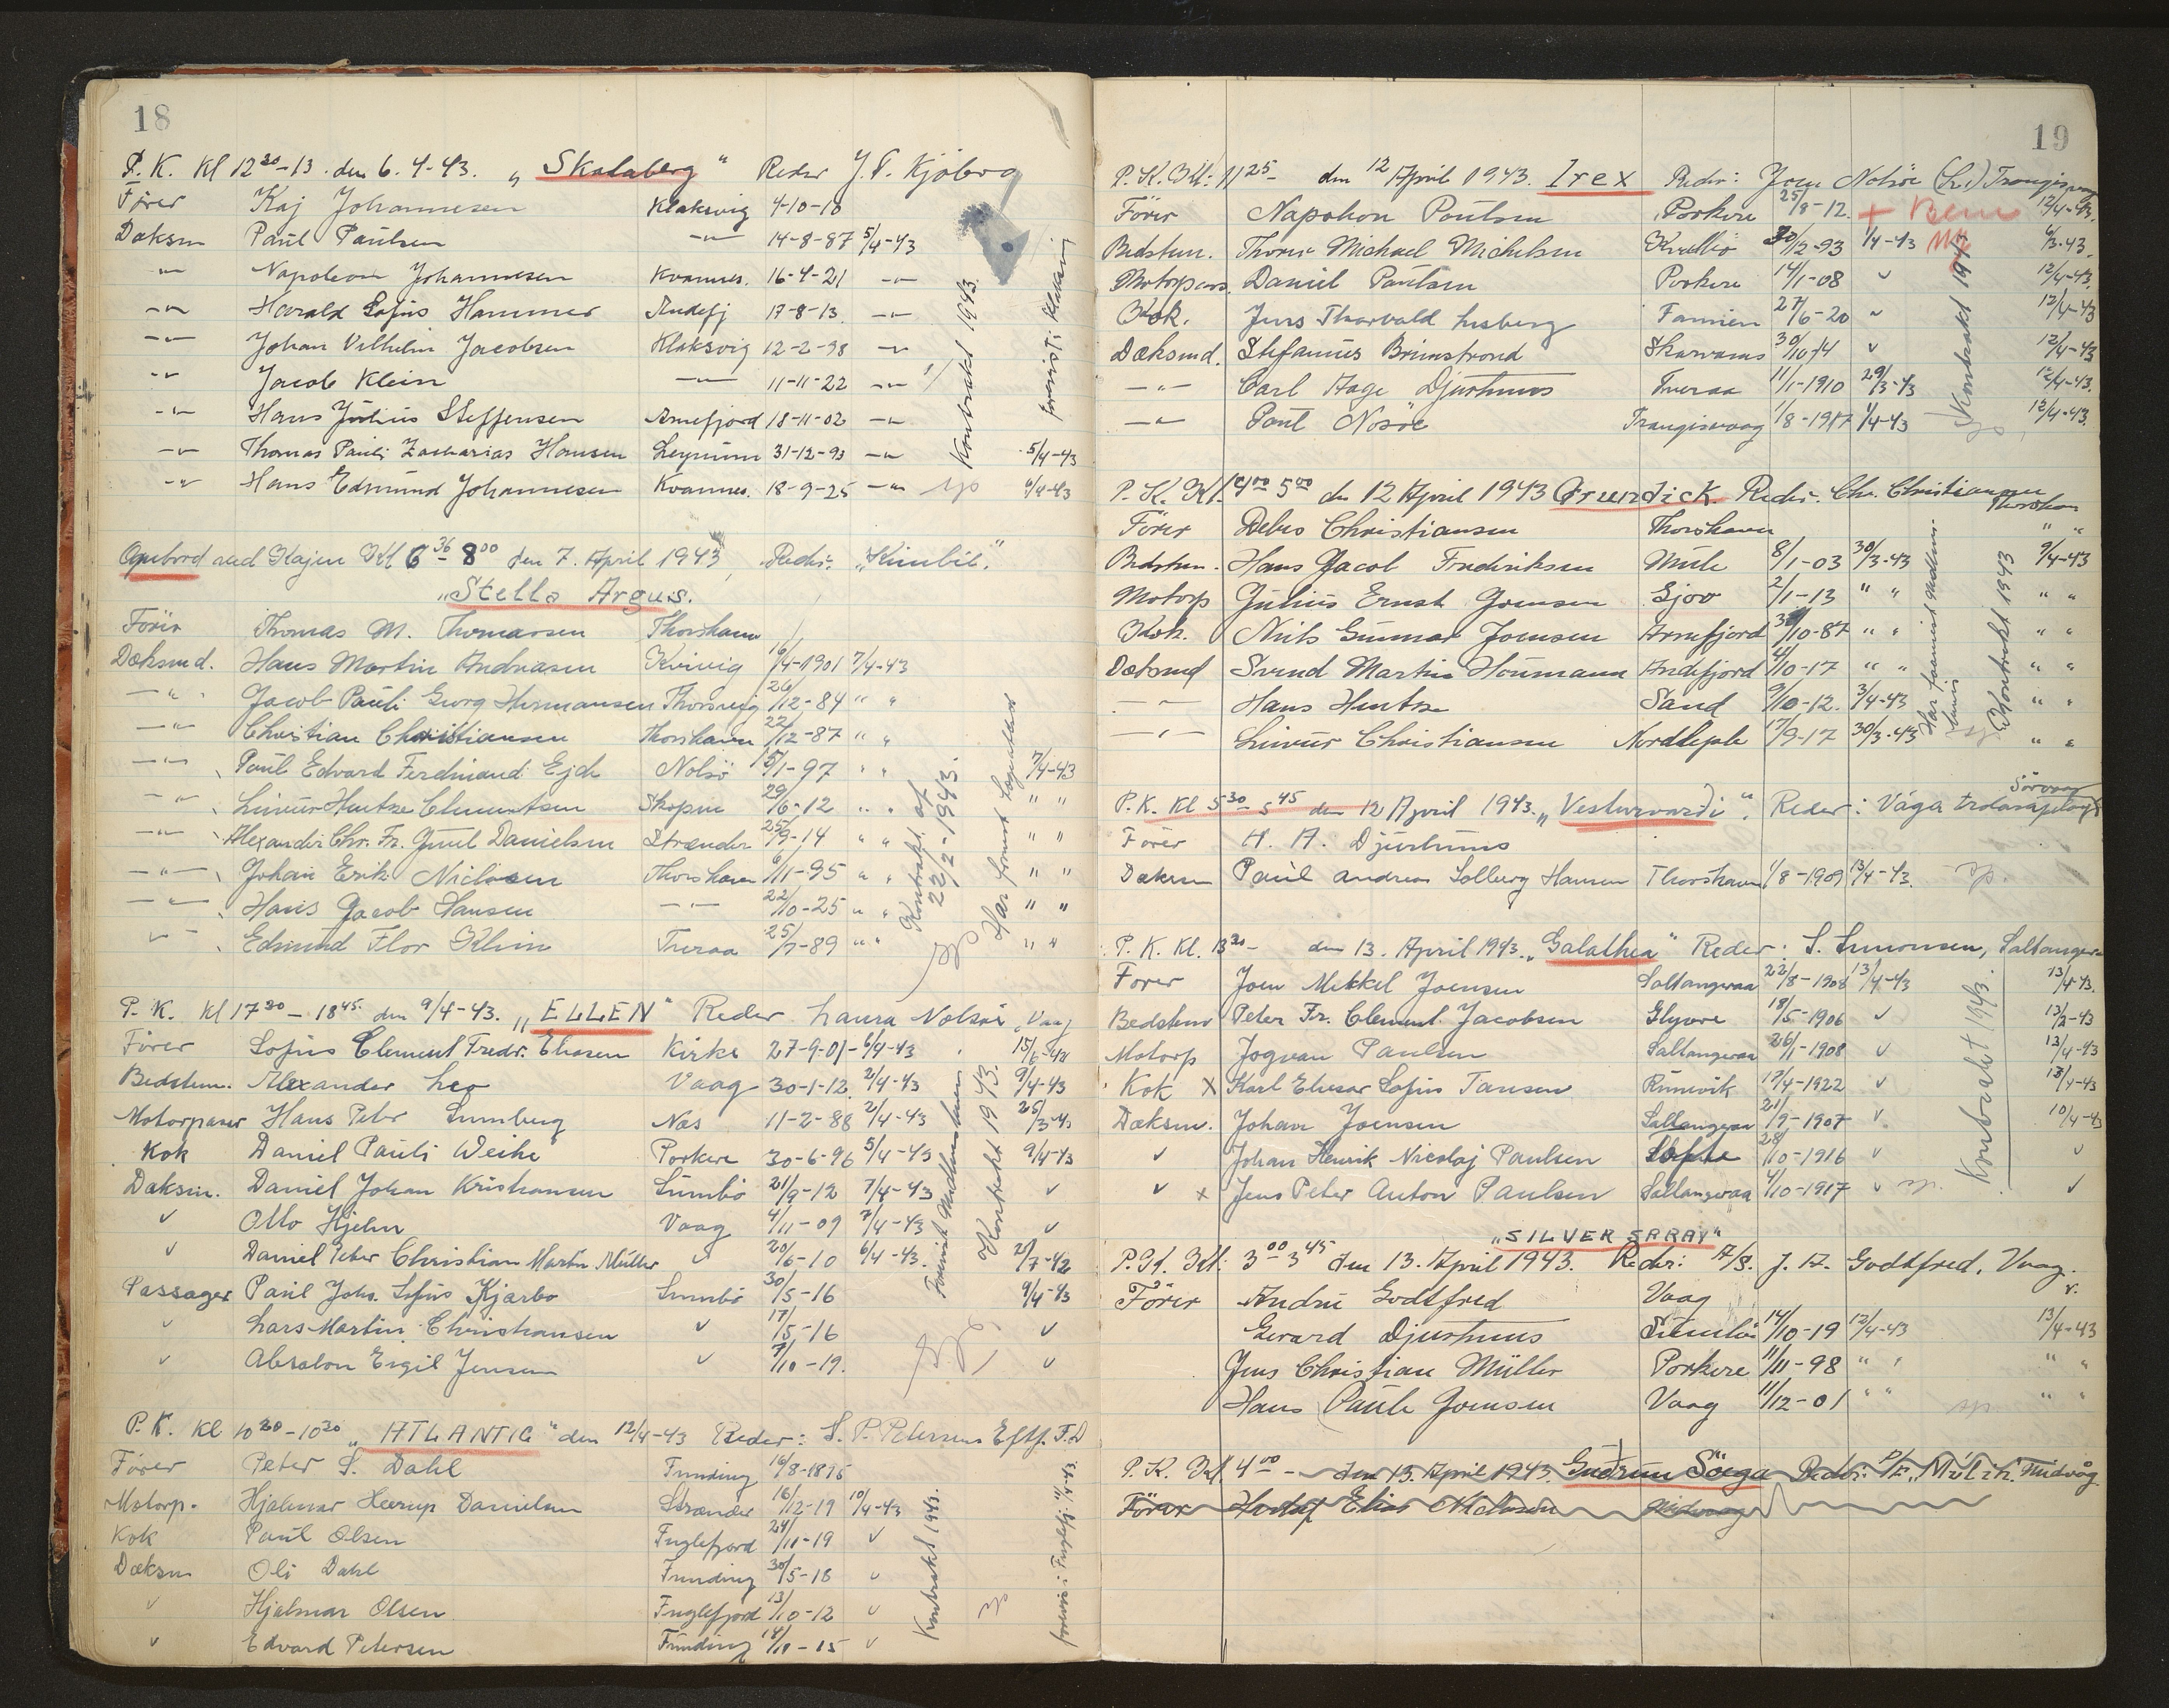 18
P.K. Kl 12 30 - 13. den 6.4-43. „Skalaberg" Reder J.F. Kjölbro
Förer Kaj Johannesen Klaksvig 4-10-10
Dæksm Paul Paulsen -"- 14-8-87 5/4-43
-"- Napoleon Johannesen Kvannes. 16-4-21 -"-
-"- Harald Sofus Hammer Andefj 17-8-13 -"-
-"- Johan Vilhelm Jacobsen Klaksvig 12-2-98 -"-
-"- Jacob Klein -"- 11-11-22 -"-
-"- Hans Julius Steffensen Arnefjord 18-11-02 -"-
-"- Thomas Pauli Zacharias Hansen Leynum 31-12-93 -"- 5/4-43
-"- Hans Edmund Johannesen Kvannes. 18-9-25 -"- 6/4-43
Kontrakt 1943.
forevist i Klaksvig
Ombord ved Kajen Kl 6 36 - 8 00 den 7. April 1943, Reder: „Kimbil."
„Stella Argus.
Förer Thomas M. Thomassen Thorshavn
Dæksmd. Hans Martin Andreasen Kvivig 16/4-1901 7/4-43
-"- Jacob Pauli Georg Hermansen Thorsvig 26/12-84 " "
-"- Christian Christiansen Thorshavn 22/12-87 " "
-"- Paul Edvard Ferdinand Ejde Nolsö 15/1-97 " " 7/4-43
-"- Livur Hentze Clementsen Skopun 29/6-12 " " " "
-"- Alexander Chr. Fr. Juul Danielsen Strænder 25/9-14 " " " "
-"- Johan Erik Niclasen Thorshavn 6/11-95 " " " "
-"- Hans Jacob Hansen -"- 22/10-25 " " " "
-"- Edmund Flor Klein Tveraa 25/7-89 " " " "
Kontrakt af 22/2-1943.
Har forevist
P.K. Kl 17 30 - 18 45. den 9/4-43. „ELLEN" Reder Laura Nolsöe, Vaag
Förer Sofus Clement Fredr. Eliasen Kirke 27-9-01 - 6/4-43 15/6-42
Bedstem. Alexander Leo Vaag 30-1-12. 2/4-43 9/4-43
Motorpasser Hans Peter Sumberg Næs 11-2-88 2/4-43 25/3-43
Kok Daniel Pauli Weihe Porkere 30-6-96 5/4-43 9/4-43
Dæksm. Daniel Johan Kristiansen Sumbö 21/9-12 7/4-43 v
v Otto Hjelm Vaag 4/11-09 7/4-43 v
v Daniel Peter Christian Martin Müller v 20/6-10 6/4-43. 21/7-42
Passager Paul Johs. Sofus Kjærbo Sumbö 30/5-16 9/4-43
v Lars Martin Christiansen v 17/5-16 v
v Absalon Eigil Jensen v 7/10-19. v
Kontrakt 1943.
P.K. Kl 10 20 - 10 30 „ATLANTIC" den 12/4-43 Reder: S.P. Petersens Eftf. F.D
Förer Peter S. Dahl Funding 16/8-1895
Motorp. Hjalmar Heerup Danielsen Strænder 16/12-19 10/4-43
Kok Paul Olsen Fuglefjord 24/11-19 v
Dæksm Oli Dahl Funding 30/5-18 v
v Hjalmar Olsen Fuglefjord 13/10-12 v
v Edvard Petersen Funding 14/11-15 v
Kontrakt 1943.
forevist i Fuglefj.
19
P.K. Kl: 11 25 - den 12 April 1943. Irex Reder: Joen Nolsöe Trangisvaag
Förer Napoleon Poulsen Porkere 25/8-12. + 12/4-43.
Bedstem. Thomas Michael Michelsen Kvalbö 30/12-93 1/4-43 6/3-43.
Motorpas. Daniel Poulsen Porkere 14/1-08 v 12/4-43.
Kok. Jens Thorvald Lisberg Famien 27/6-20 v 12/4-43
Dæksmd. Stefanus Brimstrond Skarvanes 30/10-14 v 12/4-43
-"- Carl Aage Djurhuus Tveraa 11/1-1910 29/3-43 12/4-43.
-"- Poul Nosöe Trangisvaag 1/8-1917 1/4-43 12/4-43.
Kontrakt 1943
P.K. Kl. 4 00 5 00 den 12 April 1943 Grundick. Reder. Chr. Christiansen Thorshavn
Förer Debes Christiansen Thorshavn " "
Bedstem. Hans Jacob Frederiksen Mule 8/1-03 30/3-43 9/4-43
Motorp Julius Ernst Joensen Gjov 2/1-13 " " " "
Kok. Niels Gunnar Joensen Arnefjord 30/10-87 " " " "
Dæksmd Svend Martin Houmann Andefjord 4/10-17 " " " "
-"- Hans Hentze Sand 9/10-12. 3/4-43 " "
-"- Livur Christiansen Nordleple 17/9-17 30/3-43 " "
Kontrakt 1943
P.K. Kl 5 30 - 5 45 den 12 April 1943. „Vesturvardi". Reder: Sörvaag
Förer H. A. Djurhuus
Dæksm Paul Andreas Solberg Hansen Thorshavn 1/8-1909 13/4-43.
P.K. Kl. 13 30 - den 13. April 1943. „Galathea" Reder: S. Simonsen, Saltangeraa
Förer Joen Mikkel Joensen Saltangeraa 22/8-1908 13/4-43 13/4-43.
Bedstem Peter Fr. Clement Jacobsen Glyvre 18/5-1906 v 13/2-43
Motorp Jogvan Paulsen Saltangeraa 26/1-1908 v 13/4-43
Kok x Karl Eliesar Sofus Tausen Runevik 19/4-1922 v 13/4-43
Dæksm. Johan Joensen Saltangeraa 21/9-1907 v 10/4-43
v Johan Henrik Nicolaj Paulsen 28/10-1916 v v
v x Jens Peter Anton Paulsen Saltangeraa 4/10-1917 v v
Kontrakt 1943.
„SILVER SPRAY"
P.K. Kl: 3 00 - 3 45 den 13. April 1943. Reder: A/S. J. A. Godtfred, Vaag.
Förer Andrie Godtfred Vaag v.
Gerard Djurhuus Sumbö 14/10-19 12/4-43 13/4-43
Jens Christian Müller Porkere 11/11-98 " " " "
Hans Paule Joensen Vaag 11/12-01 " " " "
P.K. Kl. 4 00 - den 13. April 1943. Gudrun Söega Reder: P/F. „Múlin" Midvåg
Förer Elias Niclasen Midvaag